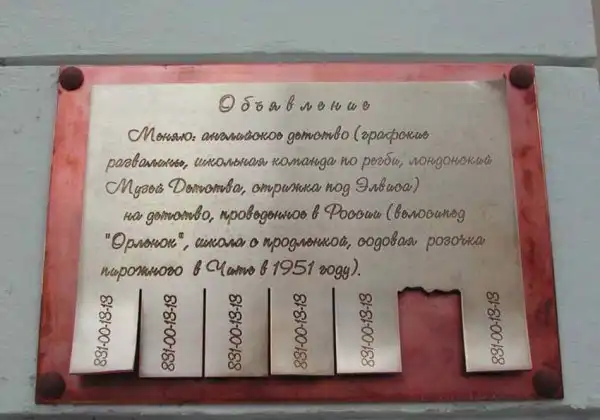 Объявление
Меняю: английское детство (графские
развалины, школьная команда по регби, лондонский
Музей Детства, стрижка под Элвиса)
на детство, проведенное в России (велосипед
"Орленок", школа с продленкой, содовая розочка
пирожного в Чите в 1951 году).
831-00-18-18
831-00-18-18
831-00-18-18
831-00-18-18
831-00-18-18
831-00-18-18